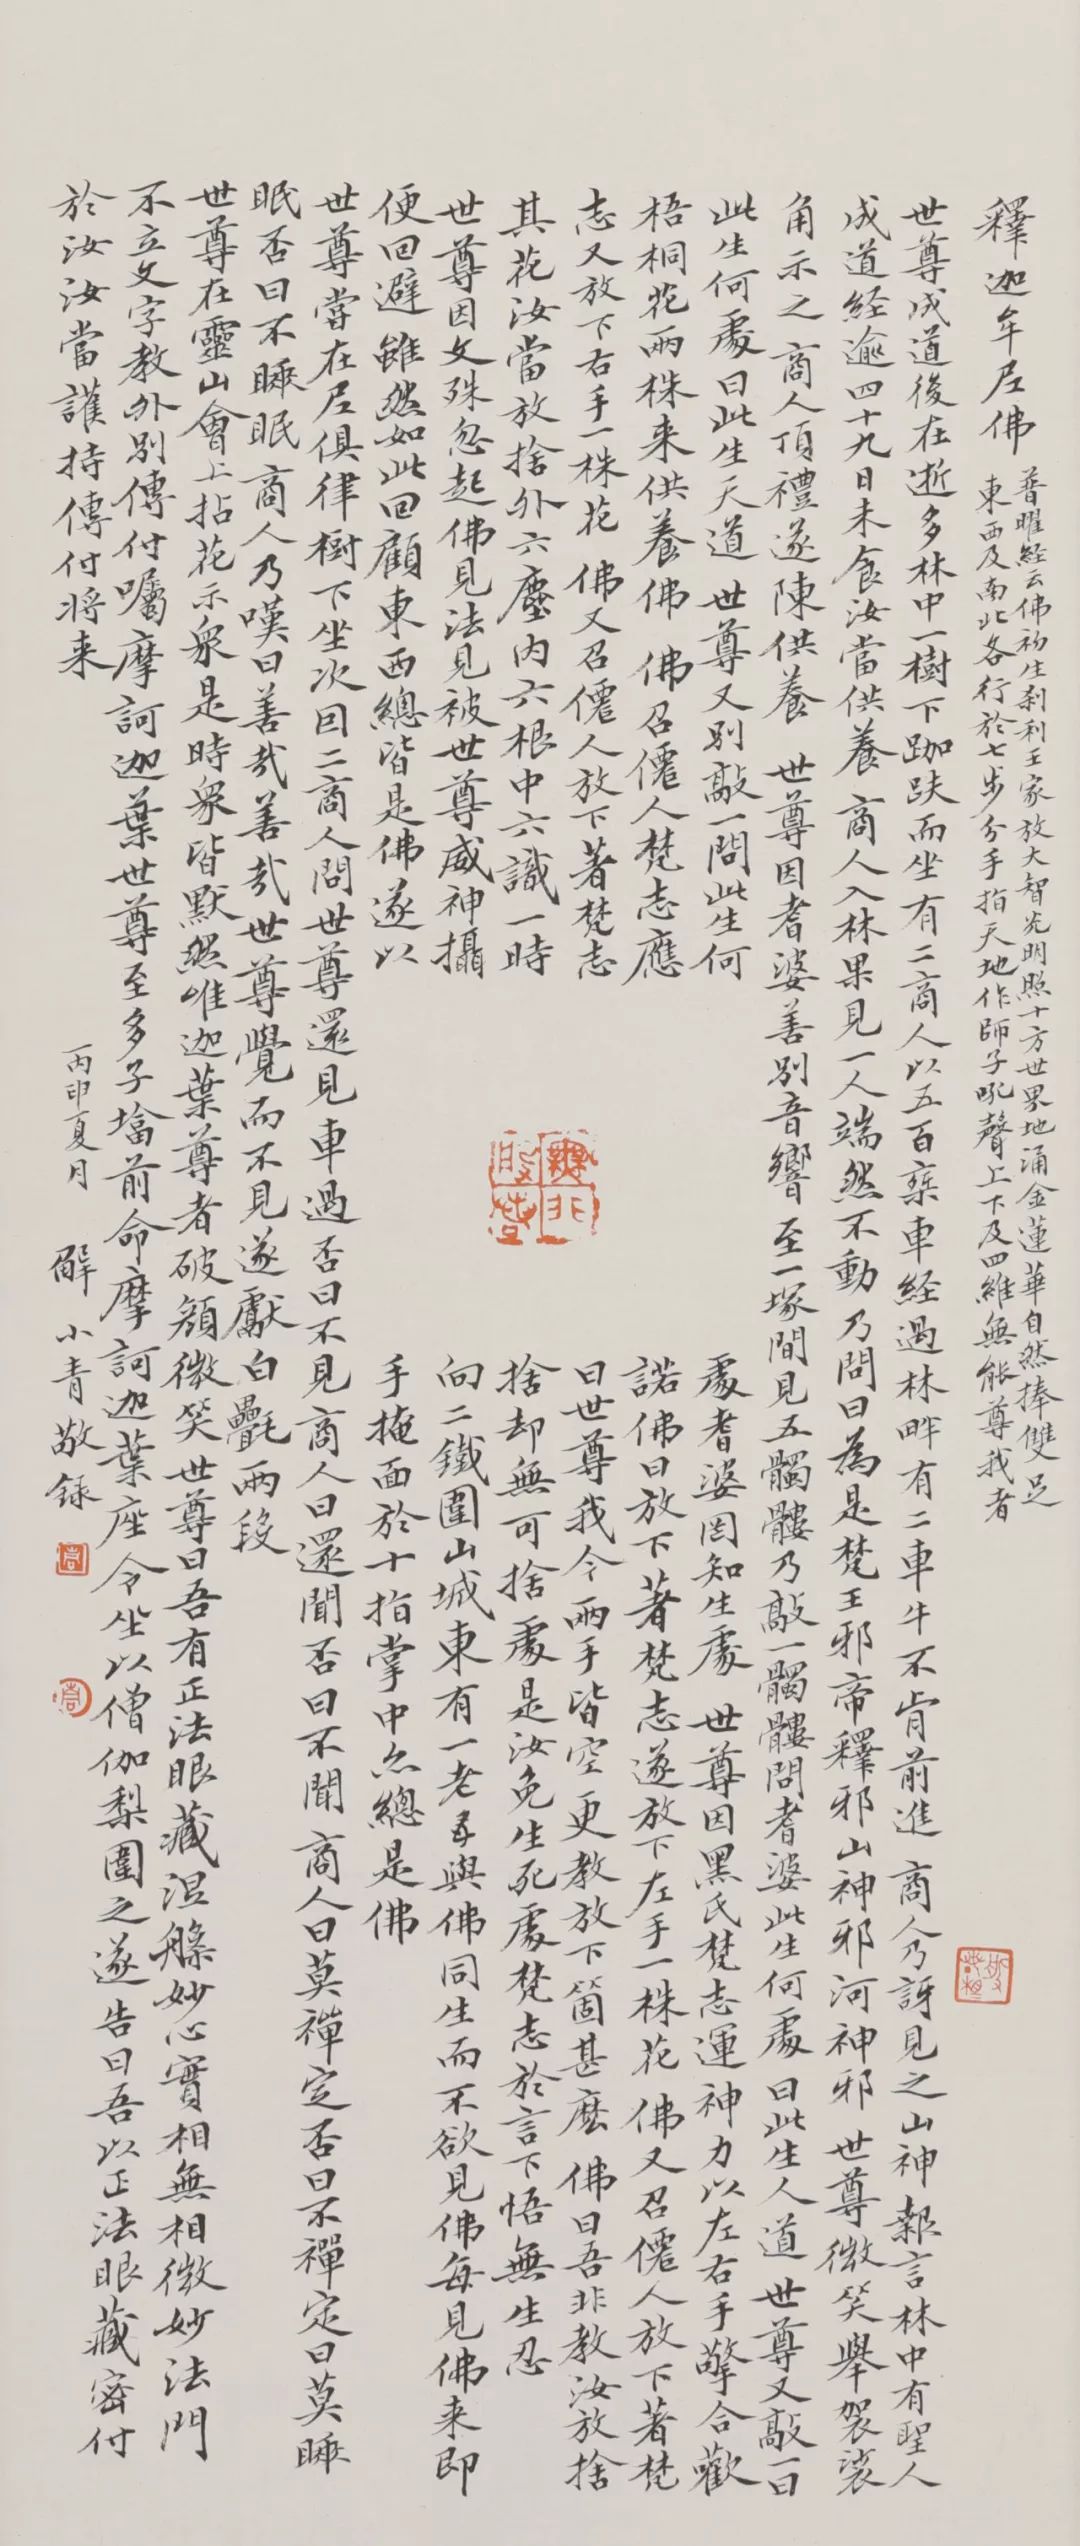 釋迦牟尼佛
普曜經云佛初生刹利王家放大智光明照十方世界地涌金蓮華自然捧雙足
東西及南北各行於七步分手指天地作師子吼聲上下及四維無能尊我者
世尊成道後在逝多林中一樹下跏趺而坐有二商人以五百乘車經過林畔有二車牛不肯前進 商人乃訝見之山神報言林中有聖人
成道經逾四十九日未食汝當供養 商人入林果見一人端然不動乃問曰為是梵王邪帝釋邪山神邪河神邪 世尊微笑舉袈裟
角示之 商人頂禮遂陳供養 世尊因耆婆善別音響至一塚間見五髑髏乃敲一髑髏問耆婆此生何處曰此生人道 世尊又敲一曰
此生何處曰此生天道 世尊又別敲一問此生何處耆婆罔知生處 世尊因黑氏梵志運神力以左右手擎合歡
梧桐花兩株来供養佛 佛召僊人梵志應諾佛曰放下著梵志遂放下左手一株花 佛又召僊人放下著梵
志又放下右手一株花 佛又召僊人放下著梵志曰世尊我今兩手皆空更教放下箇甚麼 佛曰吾非教汝放捨
其花汝當放捨外六塵内六根中六識一時捨却無可捨處是汝免生死處梵志於言下悟無生忍
世尊因文殊忽起佛見法見被世尊威神攝向二鐵圍山城東有一老母與佛同生而不欲見佛每見佛来即
便回避雖然如此回顧東西總皆是佛遂以手掩面於十指掌中亦總是佛
世尊嘗在尼俱律樹下坐次因二商人問世尊還見車過否曰不見商人曰還聞否曰不聞商人曰莫禪定否曰不禪定曰莫睡
眠否曰不睡眠商人乃嘆曰善哉善哉世尊覺而不見遂獻白氎兩段
世尊在靈山會上拈花示衆是時衆皆默然唯迦葉尊者破顔微笑世尊曰吾有正法眼藏涅槃妙心實相無相微妙法門
不立文字教外別傳付囑摩訶迦葉世尊至多子墖前命摩訶迦葉座令坐以僧伽梨圍之遂告曰吾以正法眼藏密付
於汝汝當護持傳付將来
丙申夏月 解小青敬録